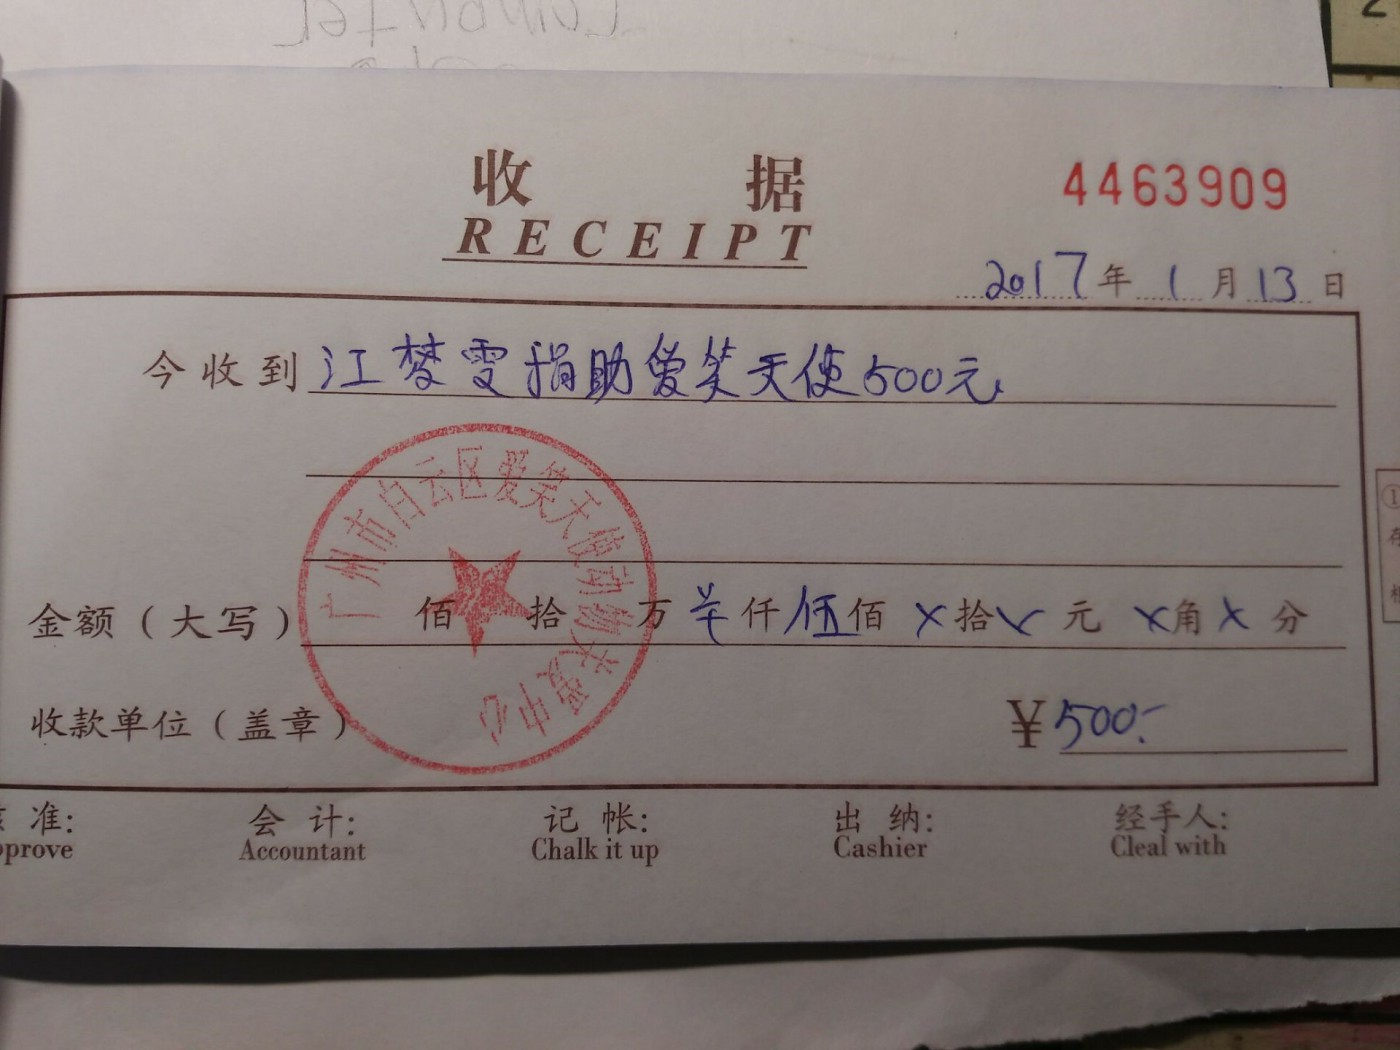 收 据
RECEIPT
4463909
2017年1月13日
今收到 江梦雯捐助爱笑天使500元
广州市白云区爱笑天使动物关爱中心
金额（大写） 佰 拾 万 仟伍佰 X拾X元 X角X分
收款单位（盖章） ¥500:-
准: 会 计: 记 帐: 出 纳: 经手人:
pprove Accountant Chalk it up Cashier Cleal with